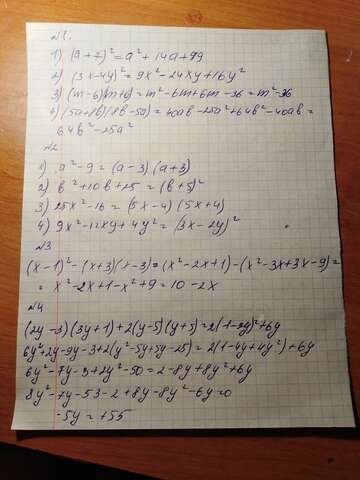 №1.
1) (a+7)² = a² + 14a + 49
2) (3x-4y)² = 9x² - 24xy + 16y²
3) (m-6)(m+6) = m² - 6m + 6m - 36 = m² - 36
4) (5a+8b)(8b-5a) = 40ab - 25a² + 64b² - 40ab =
64b² - 25a²
№2
1) a² - 9 = (a-3)(a+3)
2) b² + 10b + 25 = (b+5)²
3) 25x² - 16 = (5x-4)(5x+4)
4) 9x² - 12xy + 4y² = (3x-2y)²
№3
(x-1)² - (x+3)(x-3) = (x² - 2x + 1) - (x² - 3x + 3x - 9) =
= x² - 2x + 1 - x² + 9 = 10 - 2x
№4
(2y-3)(3y+1) + 2(y-5)(y+5) = 2(1-2y)² + 6y
6y² + 2y - 9y - 3 + 2(y² - 5y + 5y - 25) = 2(1 - 4y + 4y²) + 6y
6y² - 7y - 3 + 2y² - 50 = 2 - 8y + 8y² + 6y
8y² - 7y - 53 - 2 + 8y - 8y² - 6y = 0
-5y = +55